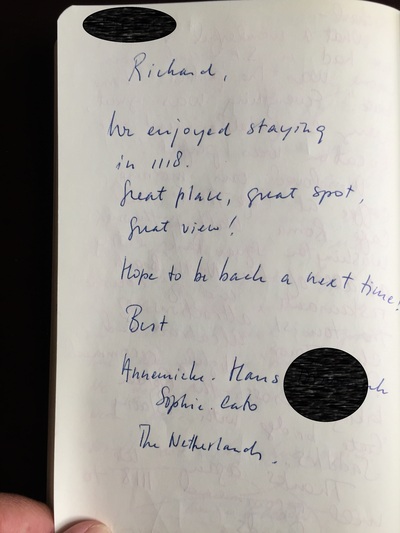 Richard,
We enjoyed staying
in 1118.
Great place, great spot,
Great view!
Hope to be back a next time!
Best
Annemieke. Hans
Sophie. Cato
The Netherlands.